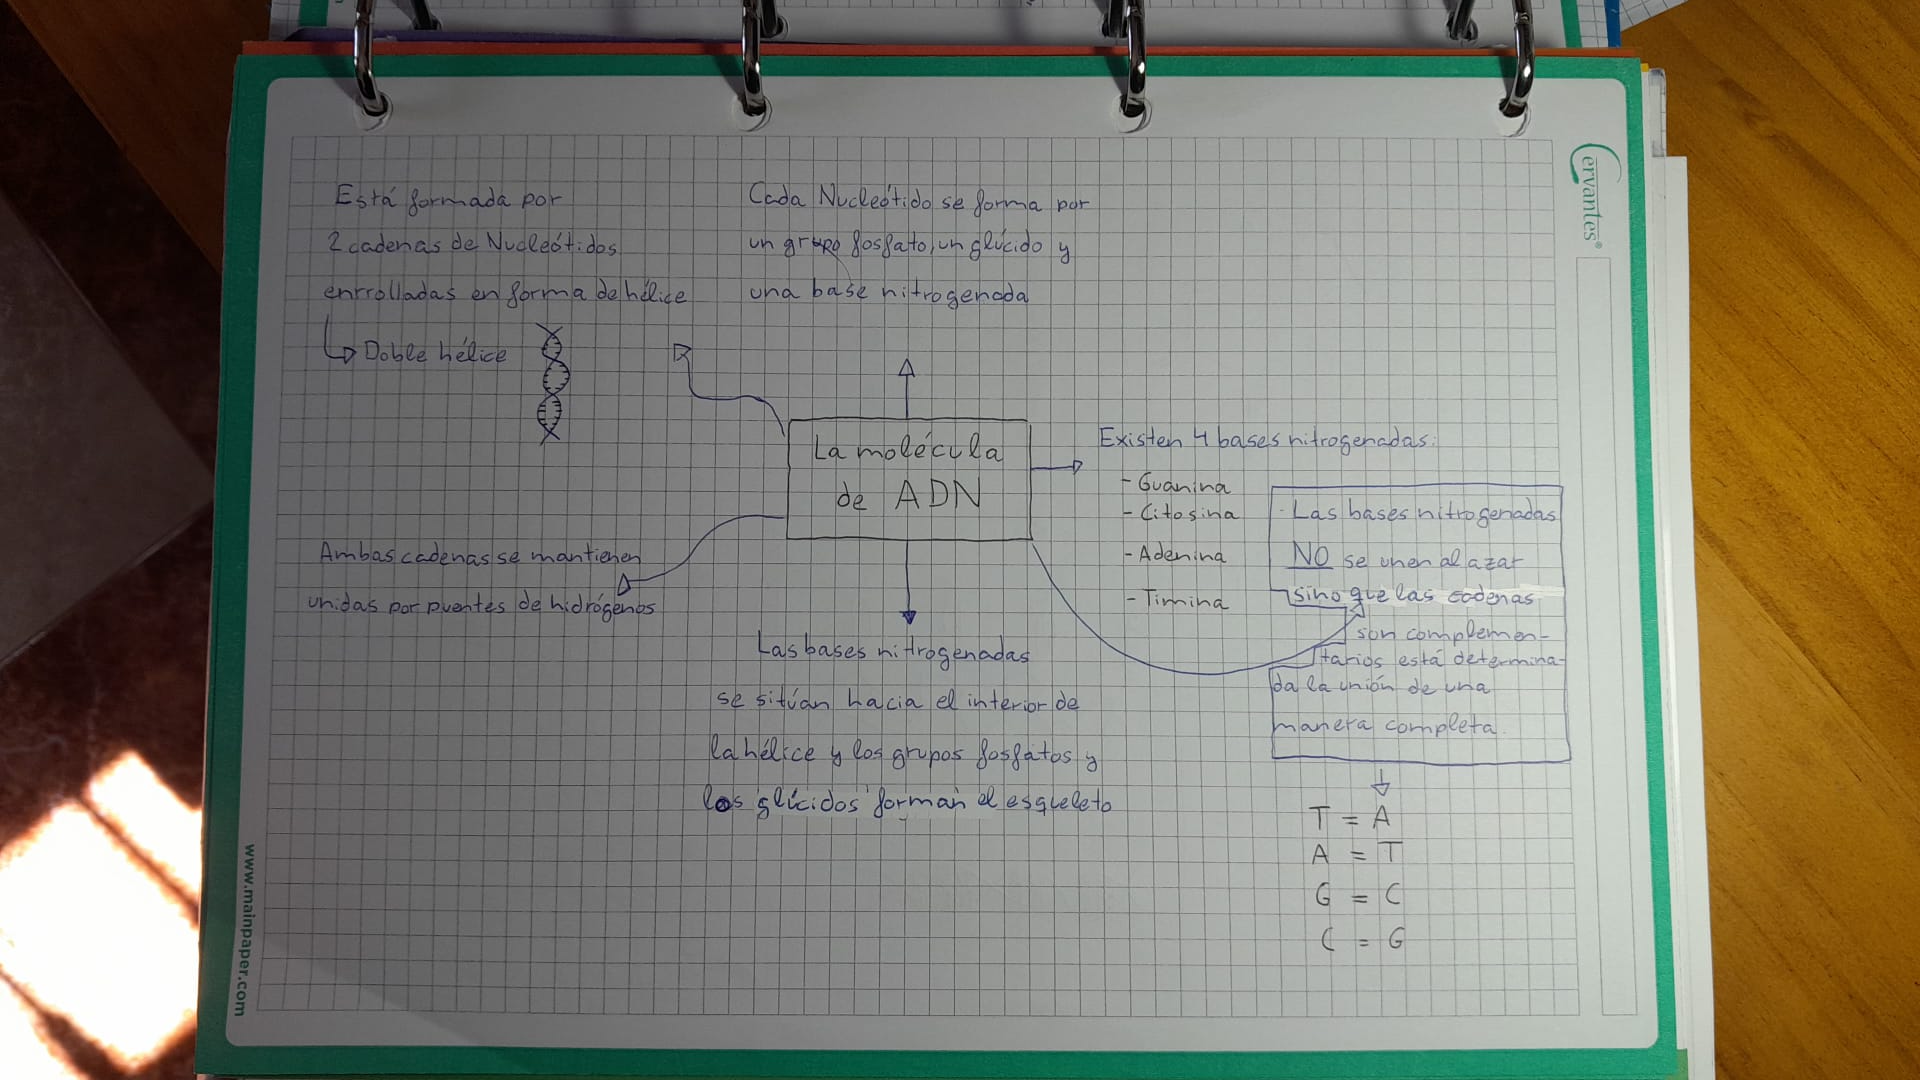 Está formada por
2 cadenas de Nucleótidos
enrrolladas en forma de hélice
Doble hélice
Cada Nucleótido se forma por
un grupo fosfato, un glúcido y
una base nitrogenada
La molécula
de ADN
Existen 4 bases nitrogenadas:
- Guanina
- Citosina
- Adenina
- Timina
Las bases nitrogenadas
NO se unen al azar
sino que las cadenas
son complemen-
tarios está determina-
da la unión de una
manera completa.
T = A
A = T
G = C
C = G
Ambas cadenas se mantienen
unidas por puentes de hidrógenos
Las bases nitrogenadas
se sitúan hacia el interior de
la hélice y los grupos fosfatos y
los glúcidos forman el esqueleto
Cervantes®
www.mainpaper.com